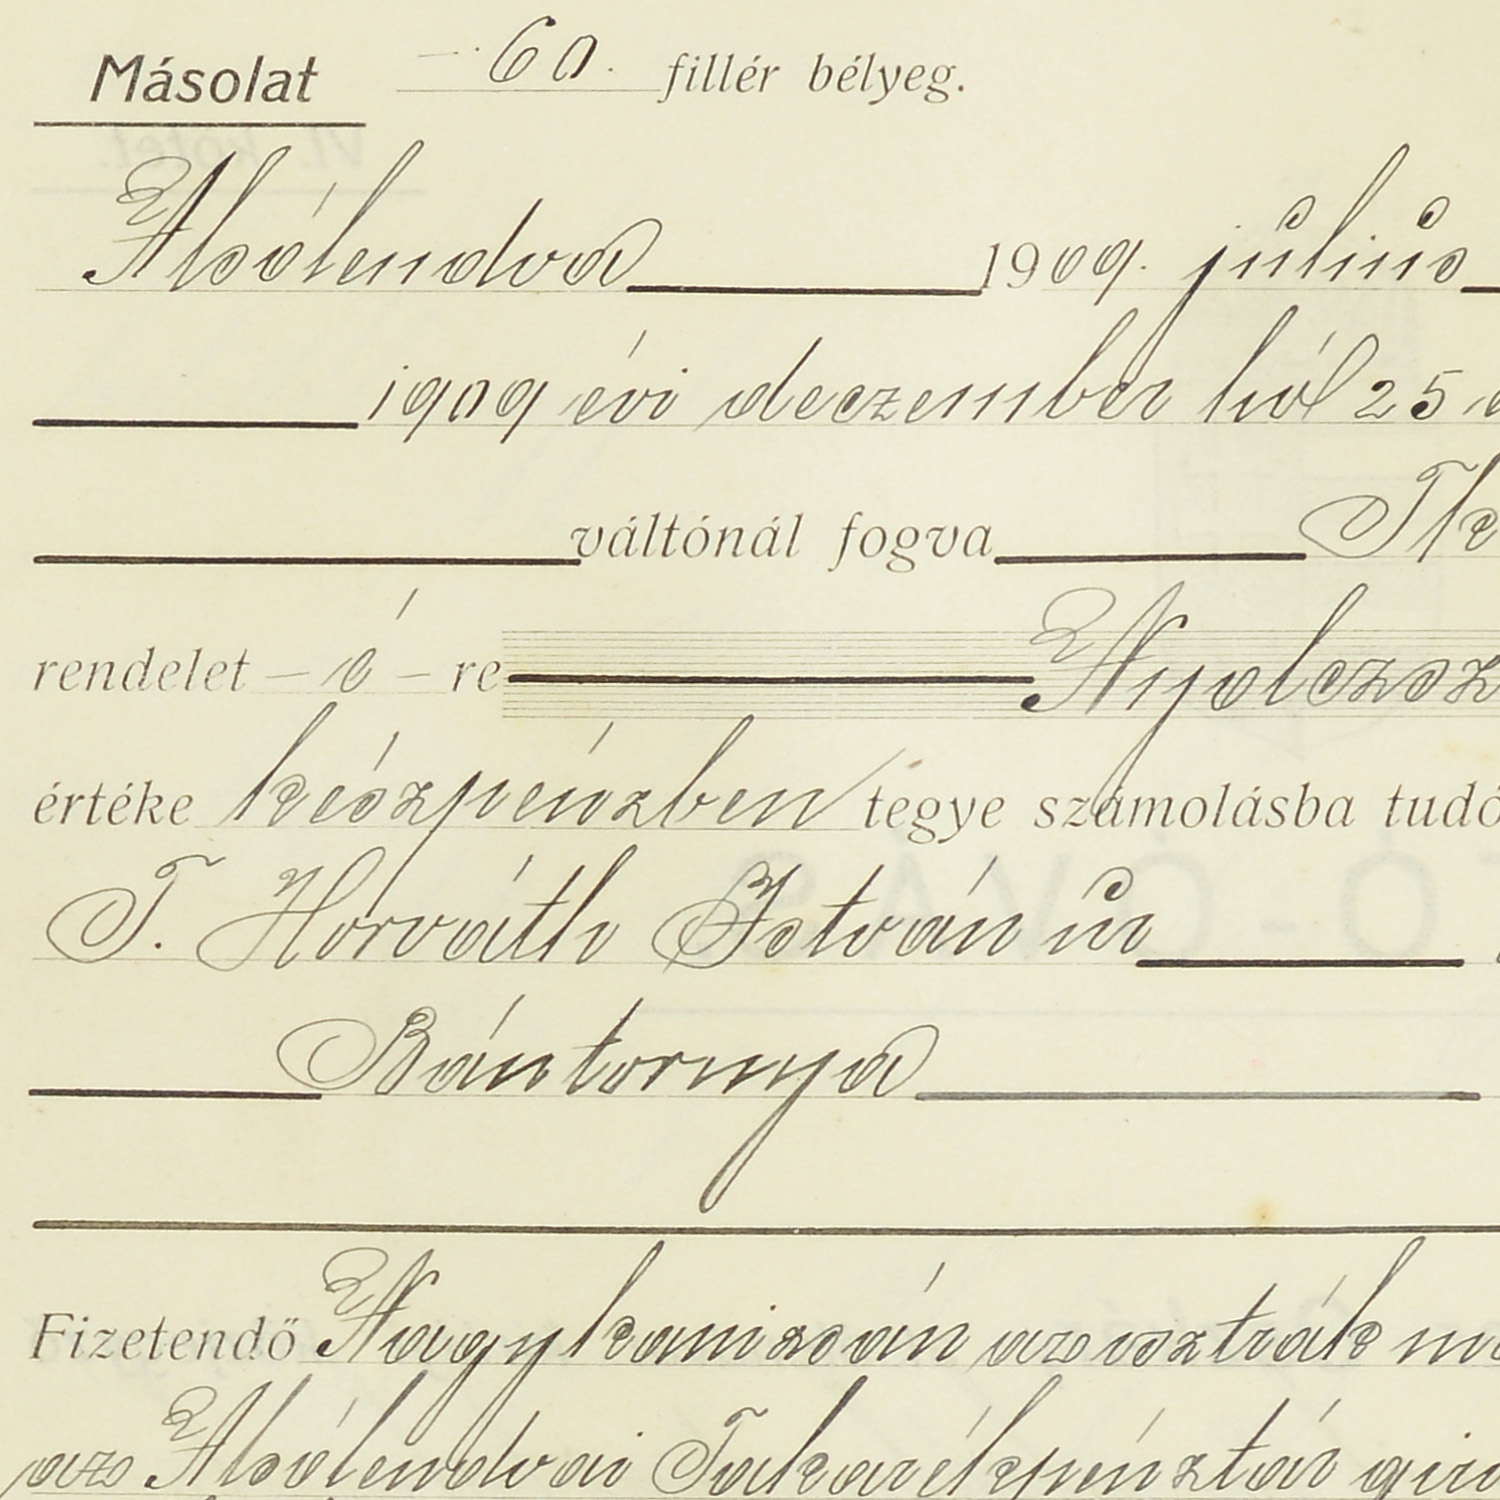 Másolat – 60. fillér bélyeg.
Alsólendva 1909. július
1909 évi deczember hó 25
váltónál fogva
rendelet – ő – re Nyolczsz
értéke készpénzben tegye számolásba tudó
T. Horváth István úr
Bántornya
Fizetendő Nagykanizsán az osztrák ma
az Alsólendvai Takarékpénztár